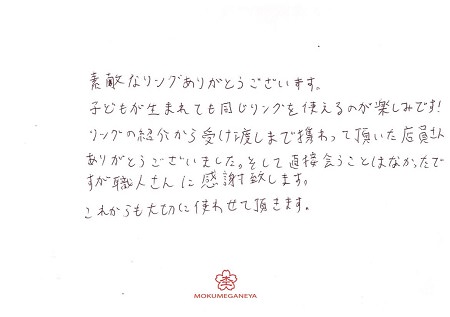 素敵なリングありがとうございます。
子どもが生まれても同じリングを使えるのが楽しみです!
リングの紹介から受け渡しまで携わって頂いた店員さん
ありがとうございました。そして直接会うことはなかったで
すが職人さんに感謝致します。
これからも大切に使わせて頂きます。
MOKUMEGANEYA